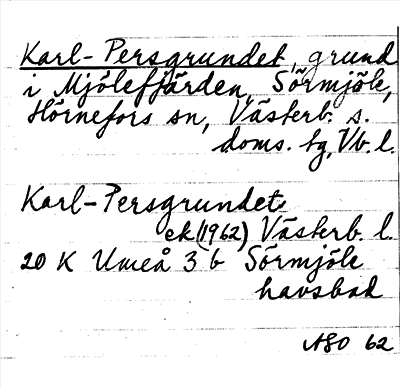 Karl-Persgrundet, grund
i Mjölefjärden, Sörmjöle,
Hörnefors sn, Västerb. s.
doms. tg, Vb. l.
Karl-Persgrundet
ek (1962) Västerb. l.
20 K Umeå 3 b Sörmjöle
havsbad
ASO 62